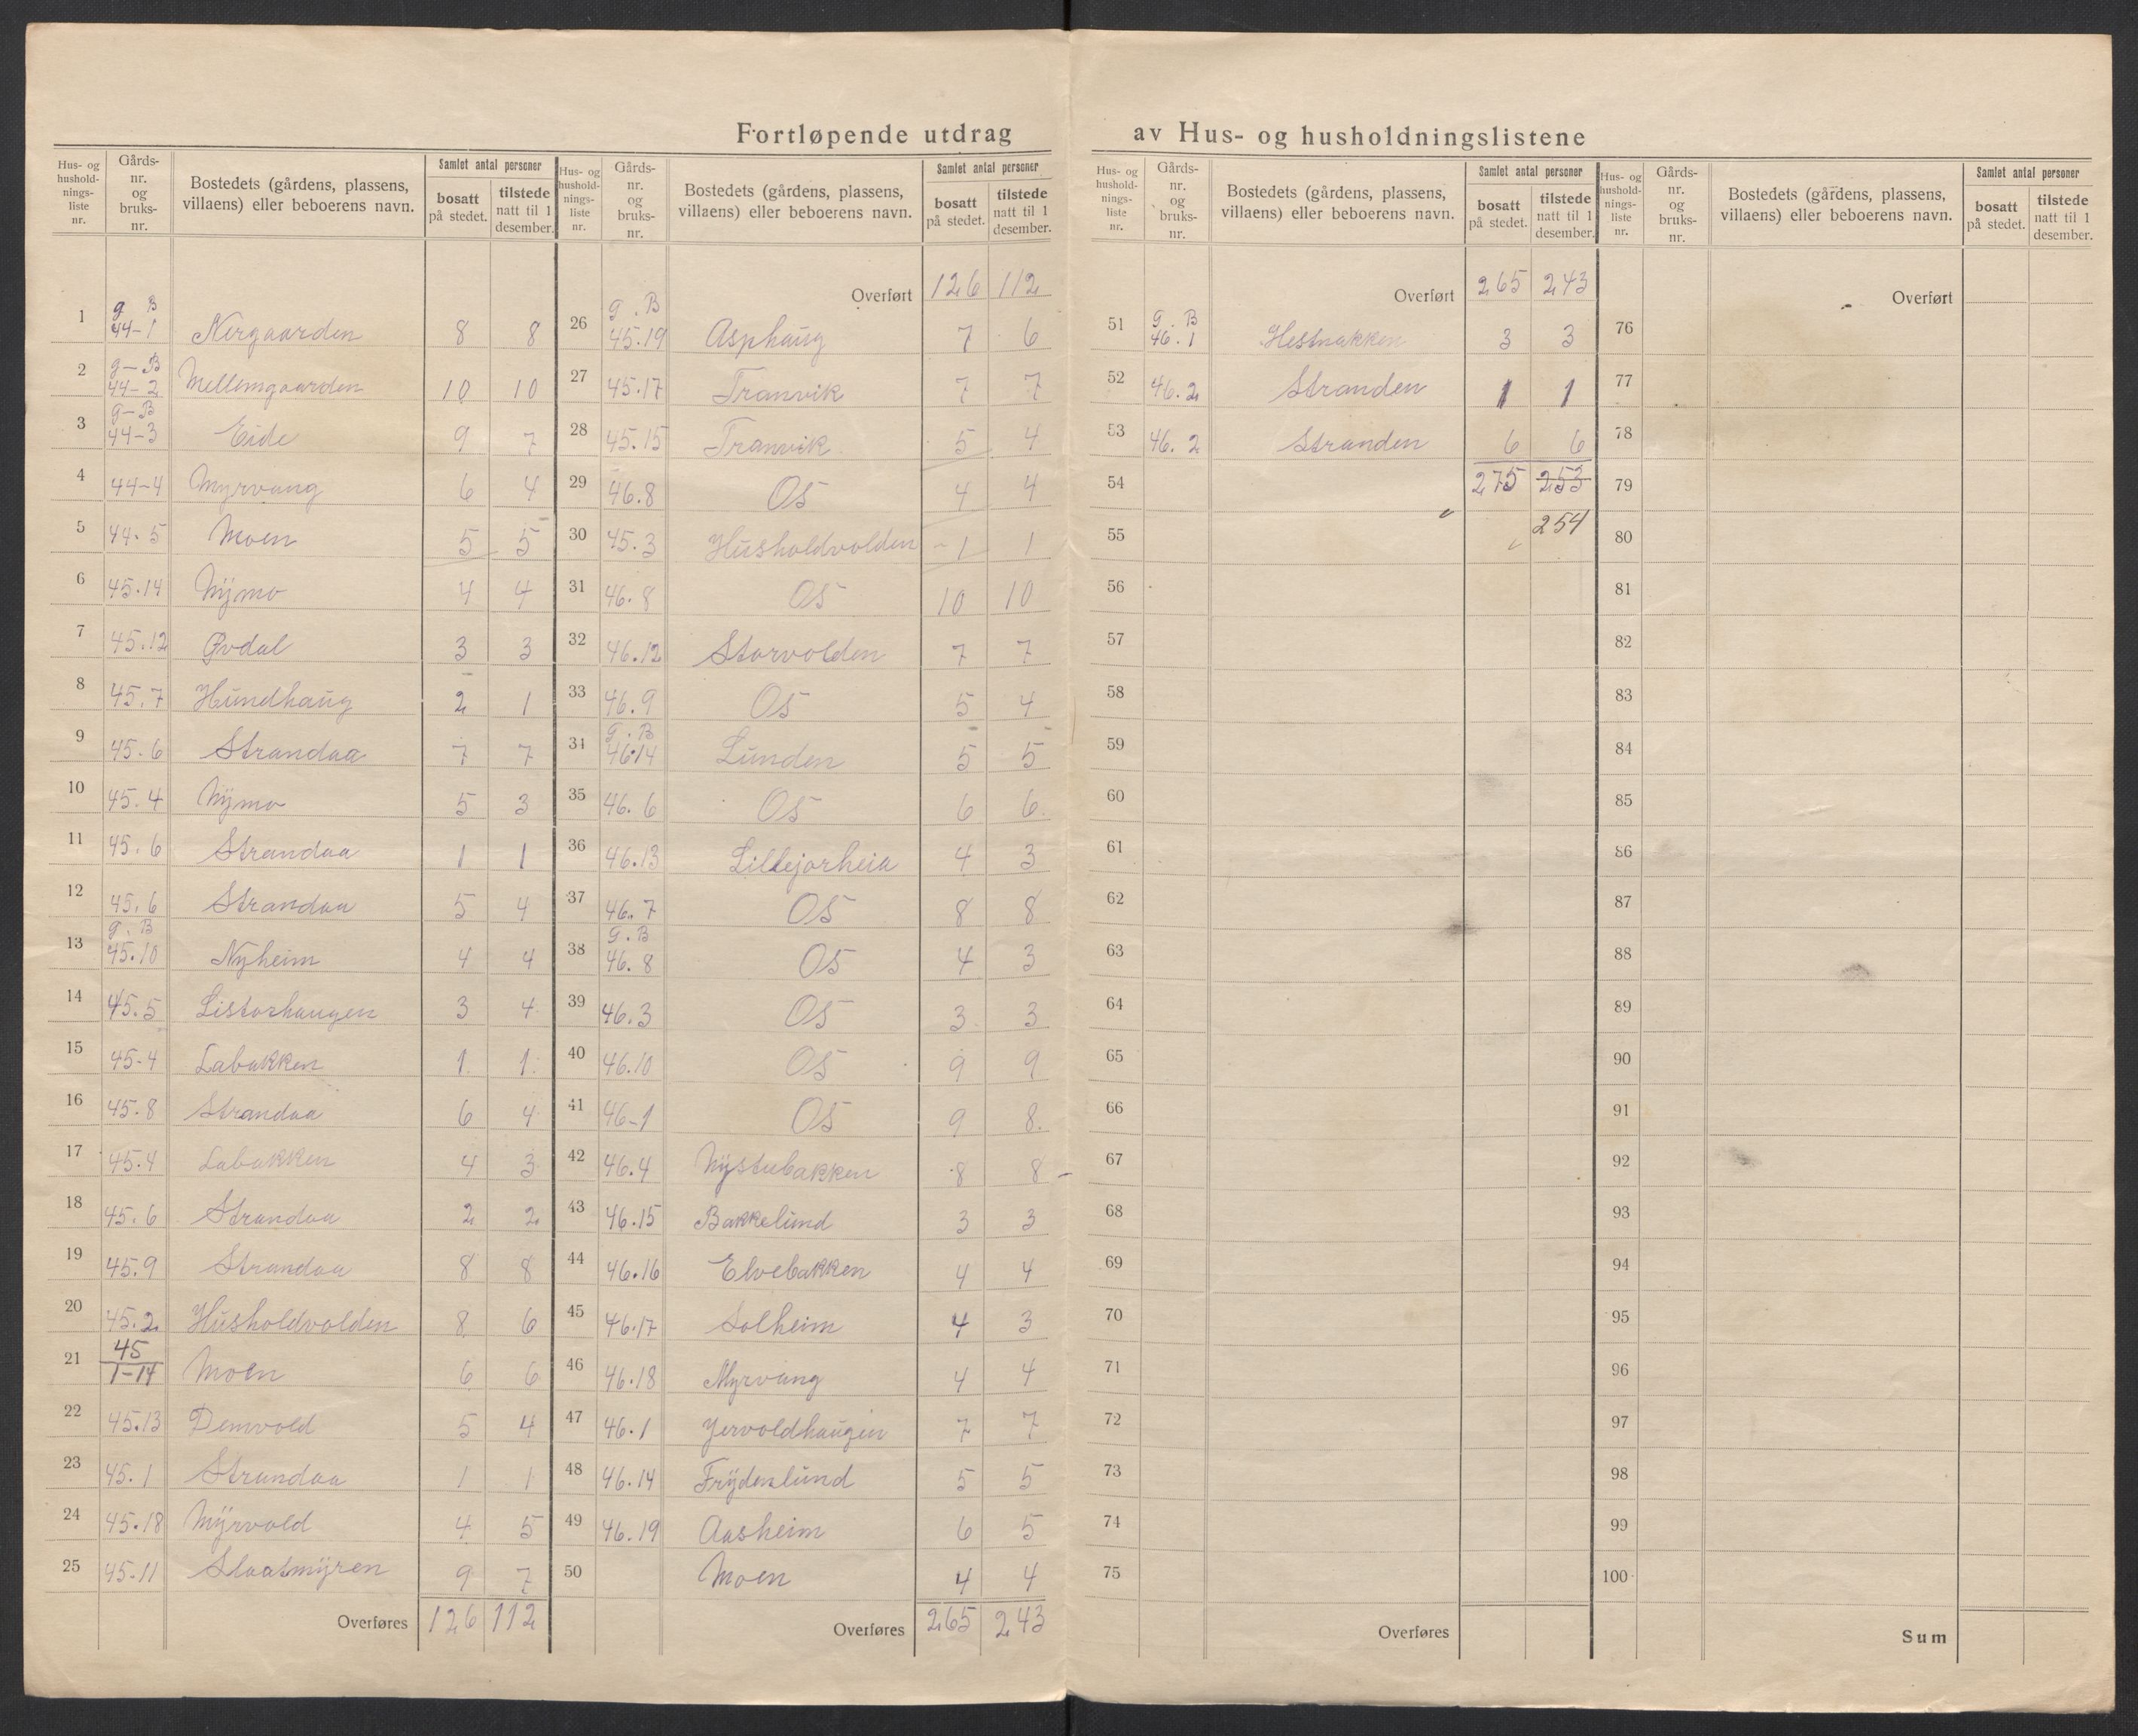 Fortløpende utdrag av Hus- og husholdningslistene
Hus- og husholdningsliste nr. Gårds-nr. og bruks-nr. Bostedets (gårdens, plassens, villaens) eller beboerens navn. Samlet antal personer bosatt på stedet. tilstede natt til 1 desember.
1 g B 44-1 Nergaarden 8 8
2 g-B 44-2 Mellemgaarden 10 10
3 g-B 44-3 Eide 9 7
4 44-4 Myrvang 6 4
5 44-5 Moen 5 5
6 45.14 Nymo 4 4
7 45.12 Øvdal 3 3
8 45.7 Hundhaug 2 1
9 45.6 Strandaa 7 7
10 45.4 Nymo 5 3
11 45.6 Strandaa 1 1
12 45.6 Strandaa 5 4
13 g.B 45.10 Nyheim 4 4
14 45.5 Listorhaugen 3 4
15 45-4 Labakken 1 1
16 45.8 Strandaa 6 4
17 45.4 Labakken 4 3
18 45.6 Strandaa 2 2
19 45.9 Strandaa 8 8
20 45.2 Husholdvolden 8 6
21 45 1-14 Moen 6 6
22 45.13 Demvold 5 4
23 45.1 Strandaa 1 1
24 45.18 Myrvold 4 5
25 45-11 Slaatmyren 9 7
Overføres 126 112
Hus- og husholdningsliste nr. Gårds-nr. og bruks-nr. Bostedets (gårdens, plassens, villaens) eller beboerens navn. Samlet antal personer bosatt på stedet. tilstede natt til 1 desember.
Overført 126 112
26 g.B 45.19 Asphaug 7 6
27 45.17 Tranvik 7 7
28 45.15 Tranvik 5 4
29 46.8 Os 4 4
30 45.3 Husholdvolden 1 1
31 46.8 Os 10 10
32 46.12 Storvolden 7 7
33 46.9 Os 5 4
34 g.B 46.14 Lunden 5 5
35 46.6 Os 6 6
36 46.13 Lillejorheia 4 3
37 46.7 Os 8 8
38 g.B 46.8 Os 4 3
39 46.3 Os 3 3
40 46.10 Os 9 9
41 46-1 Os 9 8
42 46.4 Nystubakken 8 8
43 46.15 Bakkelund 3 3
44 46.16 Elvebakken 4 4
45 46.17 Solheim 4 3
46 46.18 Myrvang 4 4
47 46.1 Jervoldhaugen 7 7
48 46.14 Frydenlund 5 5
49 46.19 Aasheim 6 5
50 Moen 4 4
Overføres 265 243
Hus- og husholdningsliste nr. Gårds-nr. og bruks-nr. Bostedets (gårdens, plassens, villaens) eller beboerens navn. Samlet antal personer bosatt på stedet. tilstede natt til 1 desember.
Overført 265 243
51 g.B 46.1 Hestnakken 3 3
52 46.2 Stranden 1 1
53 46.2 Stranden 6 6
54 275 253
55 254
56
57
58
59
60
61
62
63
64
65
66
67
68
69
70
71
72
73
74
75
Overføres
Hus- og husholdningsliste nr. Gårds-nr. og bruks-nr. Bostedets (gårdens, plassens, villaens) eller beboerens navn. Samlet antal personer bosatt på stedet. tilstede natt til 1 desember.
Overført
76
77
78
79
80
81
82
83
84
85
86
87
88
89
90
91
92
93
94
95
96
97
98
99
100
Sum